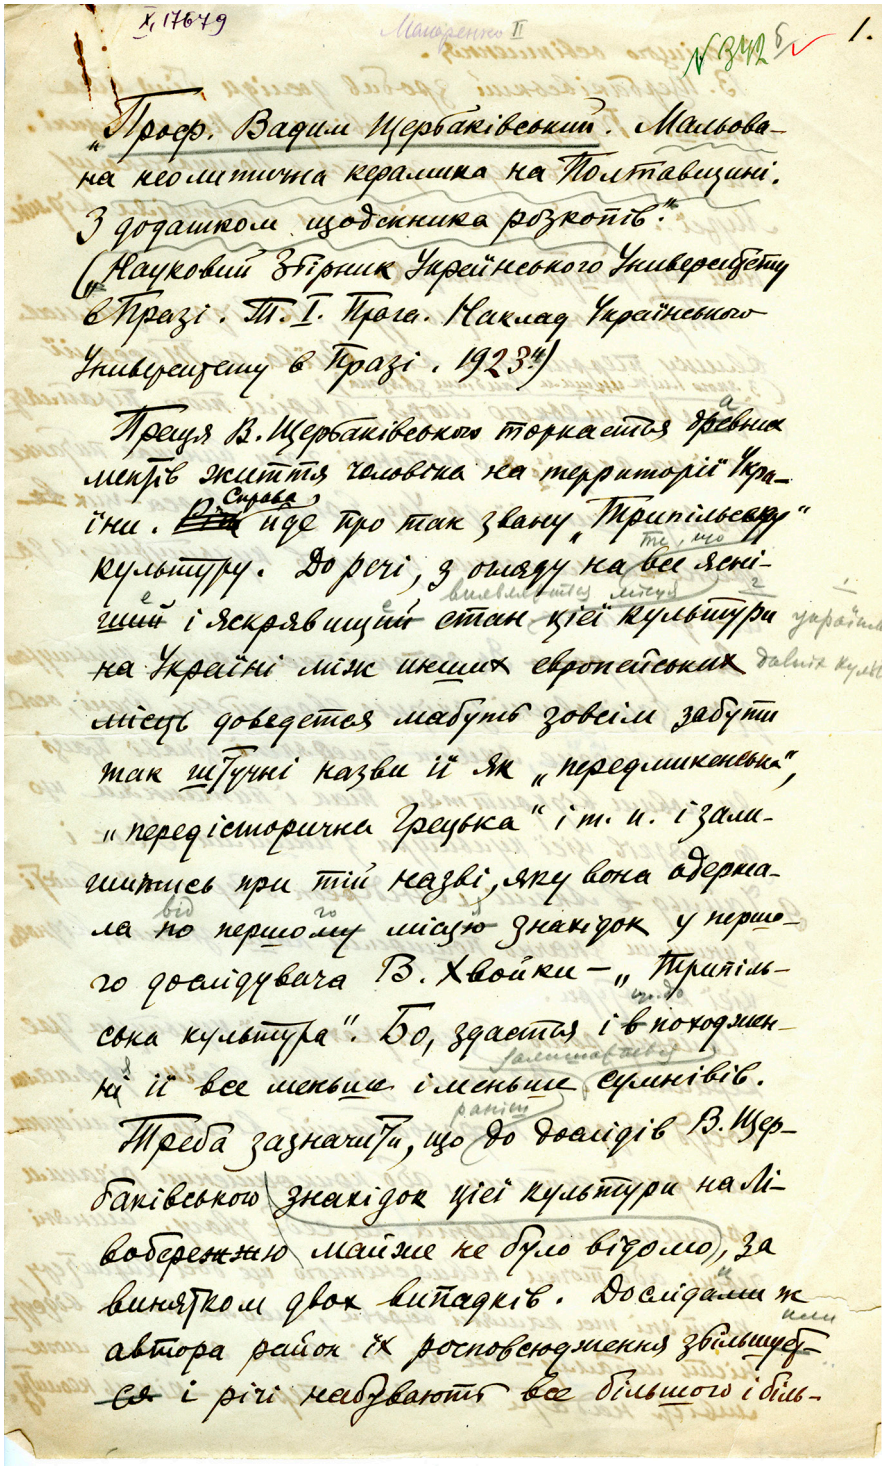 X, 17679
Макаренко II
N 342 б
1.
„Проф. Вадим Щербаківський. Мальова-
на неолитична керамика на Полтавщині.
З додатком щоденника розкопів."
(„Науковий Збірник Українського Университету
в Празі. Т. I. Прага. Наклад Українського
Университету в Празі. 1923.")
Праця В. Щербаківського торкается древних
а
ментів життя чоловіка на территорії Укра-
Справа
їни. йде про так звану „Трипільську"
те, що
культуру. До речі, з огляду на все ясні-
виявляється місця 2 1
ший і яскрявищий стан цієї культури
е е україн
на Україні між инших европейських давніх куль
місць доведется мабуть зовсім забути
так штучні назви її як „передмикенська",
„передісторична Грецька" і т. п. і зали-
шитись при тій назві, яку вона одержа-
від го я
ла по першому місцю знахідок у першо-
го дослідувача В. Хвойки — „Трипіль-
що до
ська культура". Бо, здается і в походжен-
я залишається
ні її все меньше і меньше сумнівів.
раніш
Треба зазначити, що до дослідів В. Щер-
баківського знахідок цієї культури на Лі-
вобережжю майже не було відомо, за
винятком двох випадків. Дослідами ж
и
автора район їх росповсюдження збільшует-
шили
ся і річі набувають все більшого і біль-